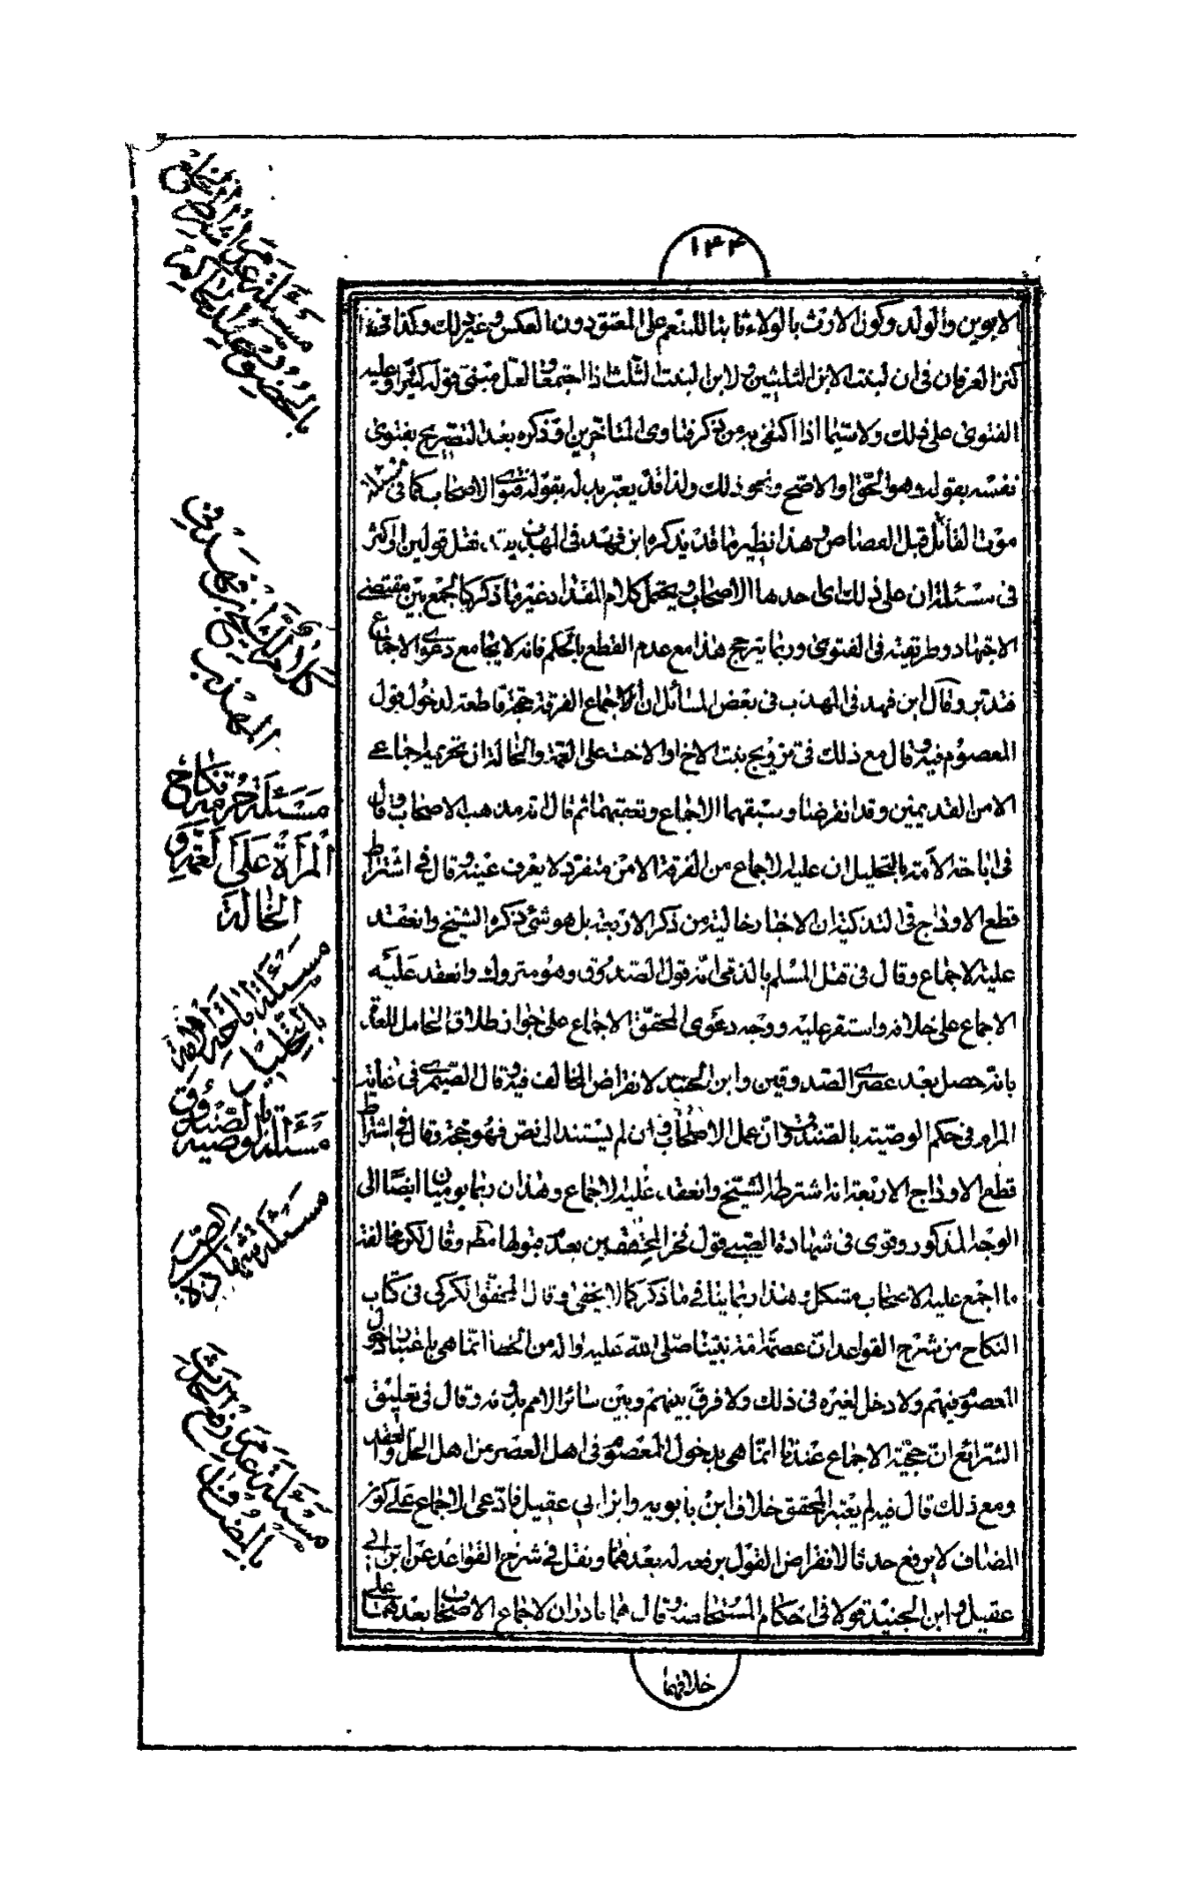 ١٤٤
الابوين والولد وكون الارث بالولاء ثابتا للمنعم على المعتق دون العكس وغير ذلك وكذا في
كنز العرفان في ان لبنت الابن الثلثين ولابن البنت الثلث اذا اجتمعا ولعل مبنى قوله كثيرا وعليه
الفتوى على ذلك ولا سيما اذا اكتفى به من ذكر فتاوى المتاخرين او ذكره بعد التصريح بفتوى
نفسه بقوله وهو الحق او الاصح ونحو ذلك ولذا قد يعتبر بدله بقوله فتوى الاصحاب كما في
موت القاتل قبل القصاص وهذا نظير ما قد يذكره ابن فهد في المهذب بعد نقل قولين او اكثر
في مسئلة ان على ذلك اى احدها الاصحاب ويحتمل كلام المقداد غير ما ذكر كالجمع بين مقتضى
الاجتهاد وطريقته في الفتوى وربما يترجح هذا مع عدم القطع بالحكم فانه لا يجامع دعوى الاجماع
فتدبر وقال ابن فهد في المهذب في بعض المسائل ان الاجماع الفرقة حجة قاطعة لدخول قول
المعصوم فيه وقال مع ذلك في تزويج بنت الاخ او الاخت على العمة والخالة ان تحريمه اجماعي
الا من القديمين وقد انقرضا وسبقهما الاجماع وتعقبهما ثم قال انه مذهب الاصحاب وقال
في اباحة الامة بالتحليل ان عليه الاجماع من الفرقة الا من منفرد لا يعرف عينه وقال في اشتراط
قطع الاوداج في التذكية ان الاخبار خالية من ذكر الاربعة بل هو شئ ذكره الشيخ وانعقد
عليه الاجماع وقال في قتل المسلم بالذمي انه قول الصدوق وهو متروك وانعقد عليه
الاجماع على خلافه واستقر عليه ووجه دعوى المحقق الاجماع على جواز طلاق الحامل للعدة
بانه حصل بعد عصرى الصدوقين وابن الجنيد لانقراض المخالف فيه وقال الصيمرى في غاية
المرام في حكم الوصية بالصندوق وان عمل الاصحاب ان لم يستند الى نص فهو حجة وقال في اشتراط
قطع الاوداج الاربعة انه اشترطه الشيخ وانعقد عليه الاجماع وهذان ربما يوميان ايضا الى
الوجه المذكور وقوى في شهادة الصبي قول فخر المحققين بعدم قبولها مطم وقال لكن مخالفة
ما اجمع عليه الاصحاب مشكل وهذا ربما ينافي ما ذكر كما لا يخفى وقال المحقق الكركي في كتاب
النكاح من شرح القواعد ان عصمة امة نبينا صلى الله عليه واله من الخطا انما هي باعتبار دخول
المعصوم فيهم ولا دخل لغيره في ذلك ولا فرق بينهم وبين سائر الامم بدونه وقال في تعليق
الشرائع ان حجية الاجماع عندنا انما هي بدخول المعصوم في اهل العصر من اهل الحل والعقد
ومع ذلك قال فيه لم يعتبر المحقق خلاف ابن بابويه وابن ابي عقيل فادعى الاجماع على كون
المضاف لا يرفع حدثا لانقراض القول برفعه له بعدهما ونقل في شرح القواعد عن ابن ابي
عقيل وابن الجنيد قولا في احكام المستحاضة وقال هما نادران لاجماع الاصحاب بعدهما على
خلافهما
كلام ابن فهد في
المهذب
مسئلة حرمة نكاح
المرأة على العمة و
الخالة
مسئلة اباحة الامة
بالتحليل
مسئلة الوصية
بالصندوق
مسئلة شهادة
الصبي
مسئلة عدم رفع الحدث
بالمضاف